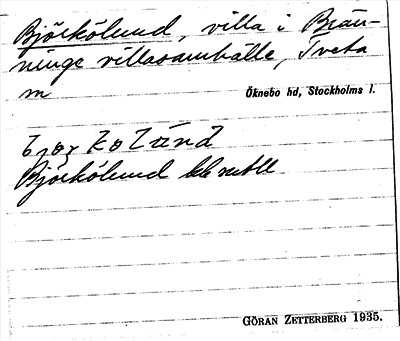 Björkölund, villa i Brän-
ninge villasamhälle, Tveta
sn
Öknebo hd, Stockholms l.
Björkölund
GÖRAN ZETTERBERG 1935.